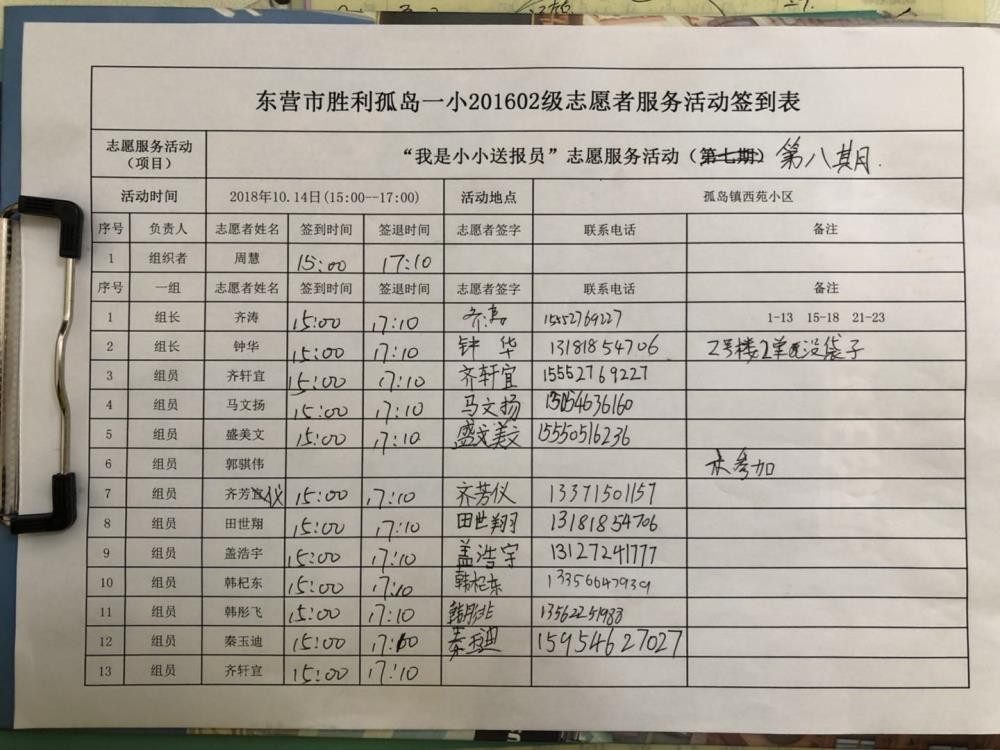 东营市胜利孤岛一小201602级志愿者服务活动签到表
志愿服务活动（项目） “我是小小送报员”志愿服务活动（第七期） 第八期.
活动时间 2018年10.14日(15:00--17:00) 活动地点 孤岛镇西苑小区
序号 负责人 志愿者姓名 签到时间 签退时间 志愿者签字 联系电话 备注
1 组织者 周慧 15:00 17:10
序号 一组 志愿者姓名 签到时间 签退时间 志愿者签字 联系电话 备注
1 组长 齐涛 15:00 17:10 齐涛 15552769227 1-13 15-18 21-23
2 组长 钟华 15:00 17:10 钟华 13181854706 2号楼2单元没袋子
3 组员 齐轩宜 15:00 17:10 齐轩宜 15552769227
4 组员 马文扬 15:00 17:10 马文扬 4636160
5 组员 盛美文 15:00 17:10 盛美文 15550516236
6 组员 郭骐伟 未参加
7 组员 齐芳仪 15:00 17:10 齐芳仪 13371501157
8 组员 田世翔 15:00 17:10 田世翔 13181854706
9 组员 盖浩宇 15:00 17:10 盖浩宇 13127241777
10 组员 韩杞东 15:00 17:10 韩杞东 13356647939
11 组员 韩彤飞 15:00 17:10 韩彤飞
12 组员 秦玉迪 15:00 17:10 秦玉迪 15954627027
13 组员 齐轩宜 15:00 17:10